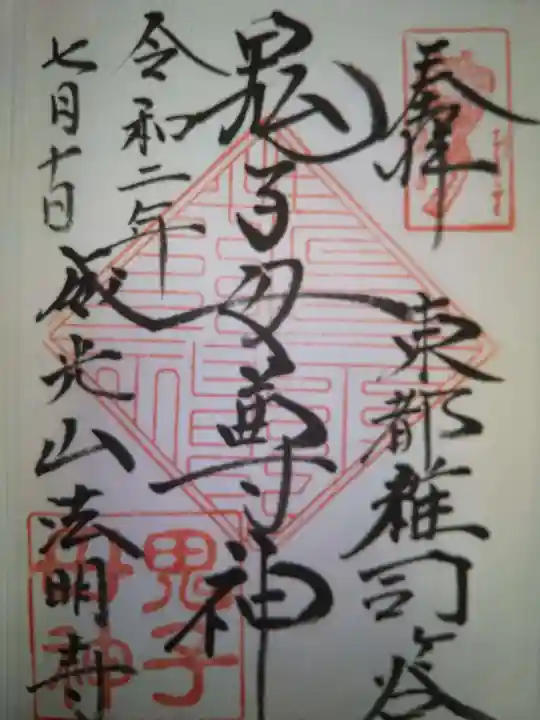 奉拝
東都雑司ヶ谷
鬼子母尊神
令和二年
七月十日
威光山法明寺
鬼子
母神